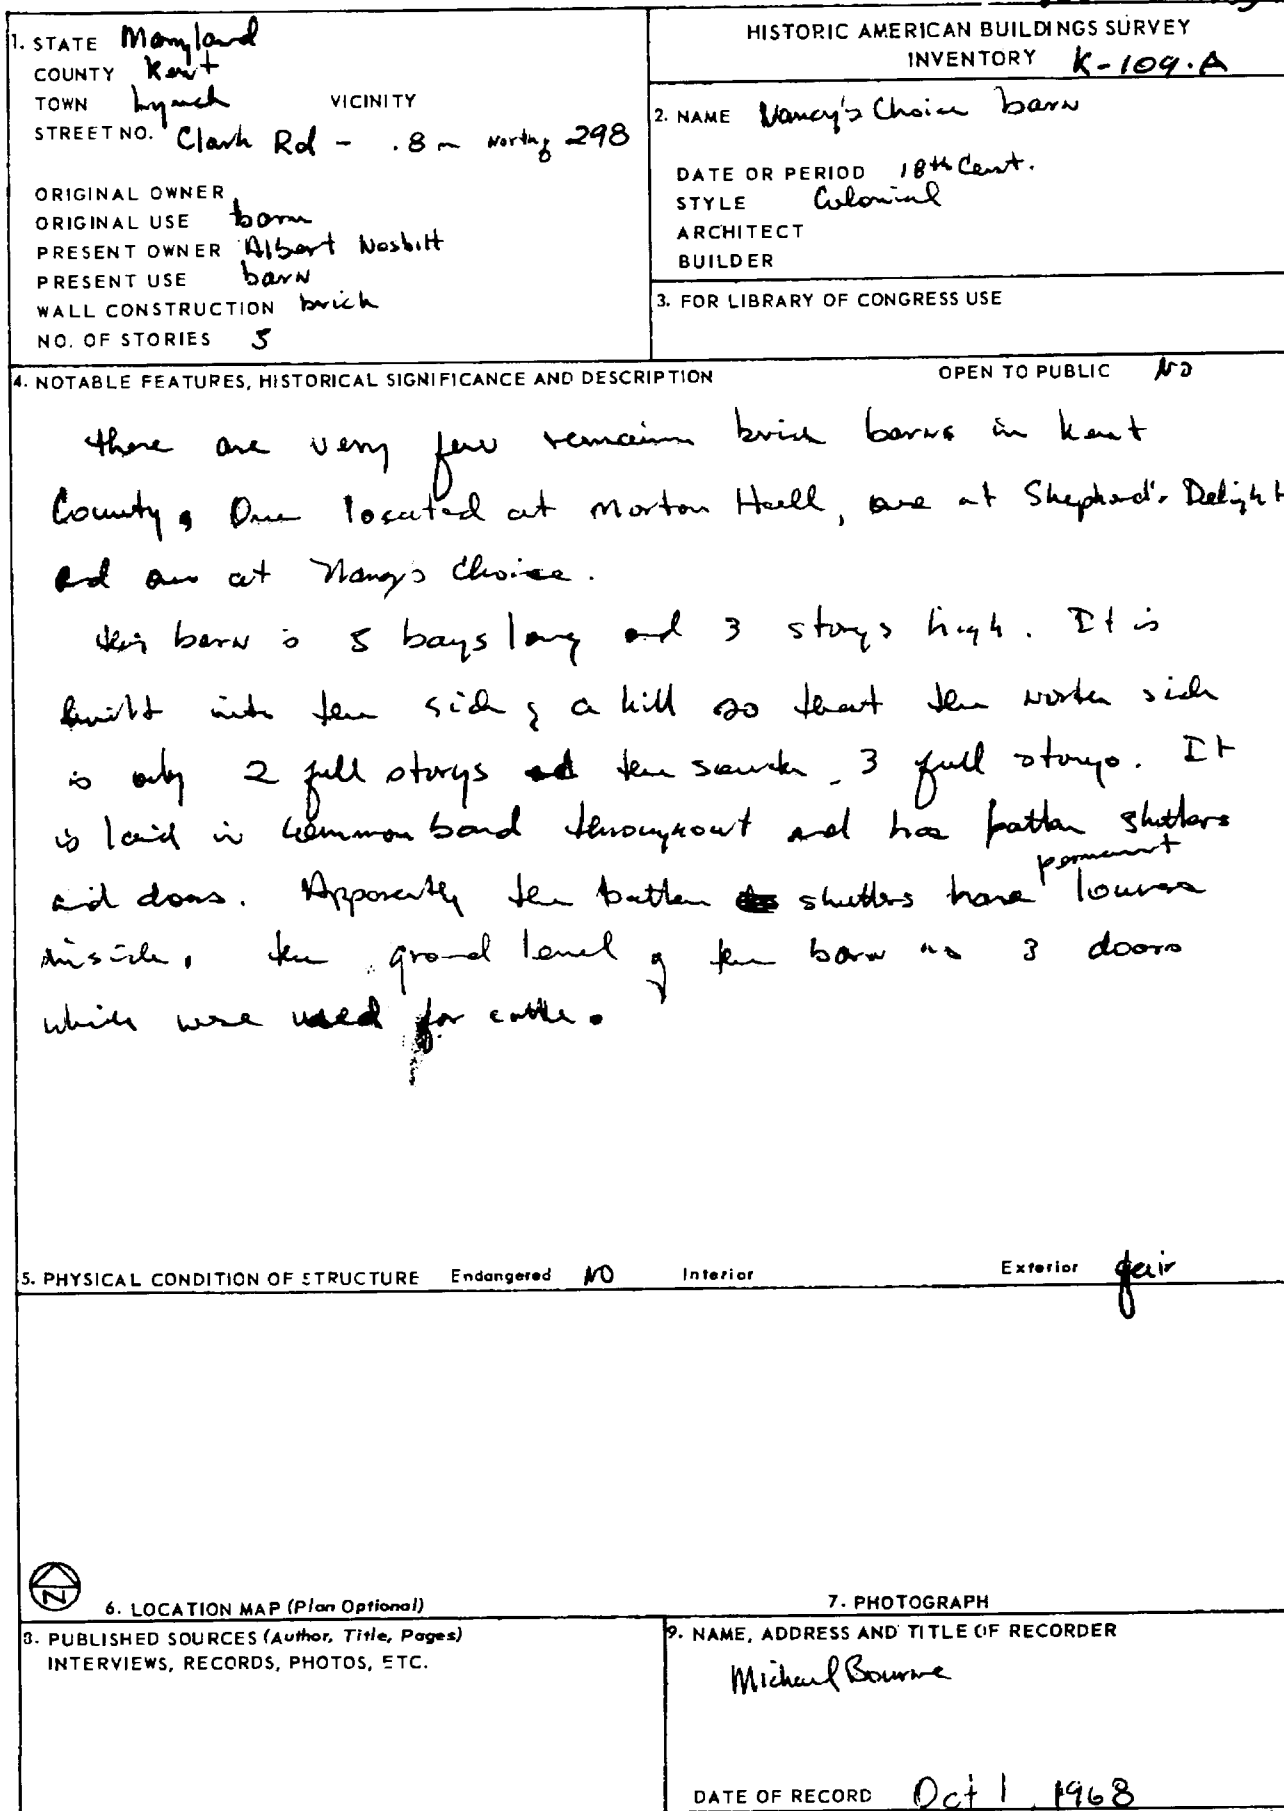 1. STATE Maryland
COUNTY Kent
TOWN Lynch VICINITY
STREET NO. Clark Rd - .8 m North of 298
ORIGINAL OWNER
ORIGINAL USE barn
PRESENT OWNER Albert Nesbitt
PRESENT USE barn
WALL CONSTRUCTION brick
NO. OF STORIES 3
HISTORIC AMERICAN BUILDINGS SURVEY
INVENTORY K-109.A
2. NAME Nancy's Choice barn
DATE OR PERIOD 18th Cent.
STYLE Colonial
ARCHITECT
BUILDER
3. FOR LIBRARY OF CONGRESS USE
4. NOTABLE FEATURES, HISTORICAL SIGNIFICANCE AND DESCRIPTION OPEN TO PUBLIC NO
there are very few brick barns in Kent
County. One located at Morton Hall, one at Shepherd's Delight
and one at Nancy's Choice.
this barn is 5 bays long and 3 storys high. It is
built into the side of a hill so that the north side
is only 2 full storys and the south 3 full storys. It
is laid in common bond throughout and has batten shutters
and doors. Apparently the batten shutters have permanent louvers
inside. the ground level of the barn has 3 doors
which were used for cattle.
5. PHYSICAL CONDITION OF STRUCTURE Endangered NO Interior Exterior fair
N
6. LOCATION MAP (Plan Optional) 7. PHOTOGRAPH
8. PUBLISHED SOURCES (Author, Title, Pages)
INTERVIEWS, RECORDS, PHOTOS, ETC.
9. NAME, ADDRESS AND TITLE OF RECORDER
Michael Bourne
DATE OF RECORD Oct 1, 1968